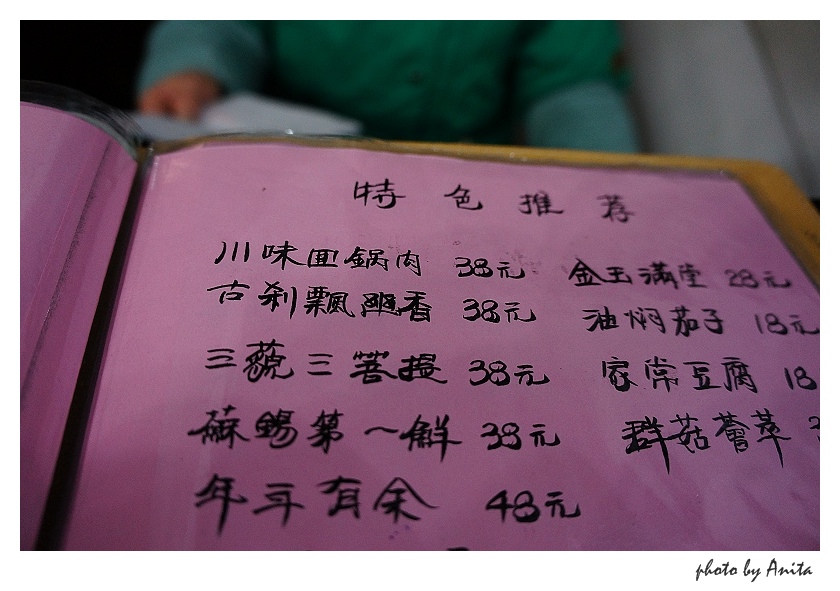 特色推荐
川味回鍋肉 38元
古刹飄幽香 38元
三藐三菩提 38元
蘇錫第一鮮 38元
年年有余 48元
金玉滿堂 28元
油焖茄子 18元
家常豆腐 18
群菇薈萃
photo by Anita